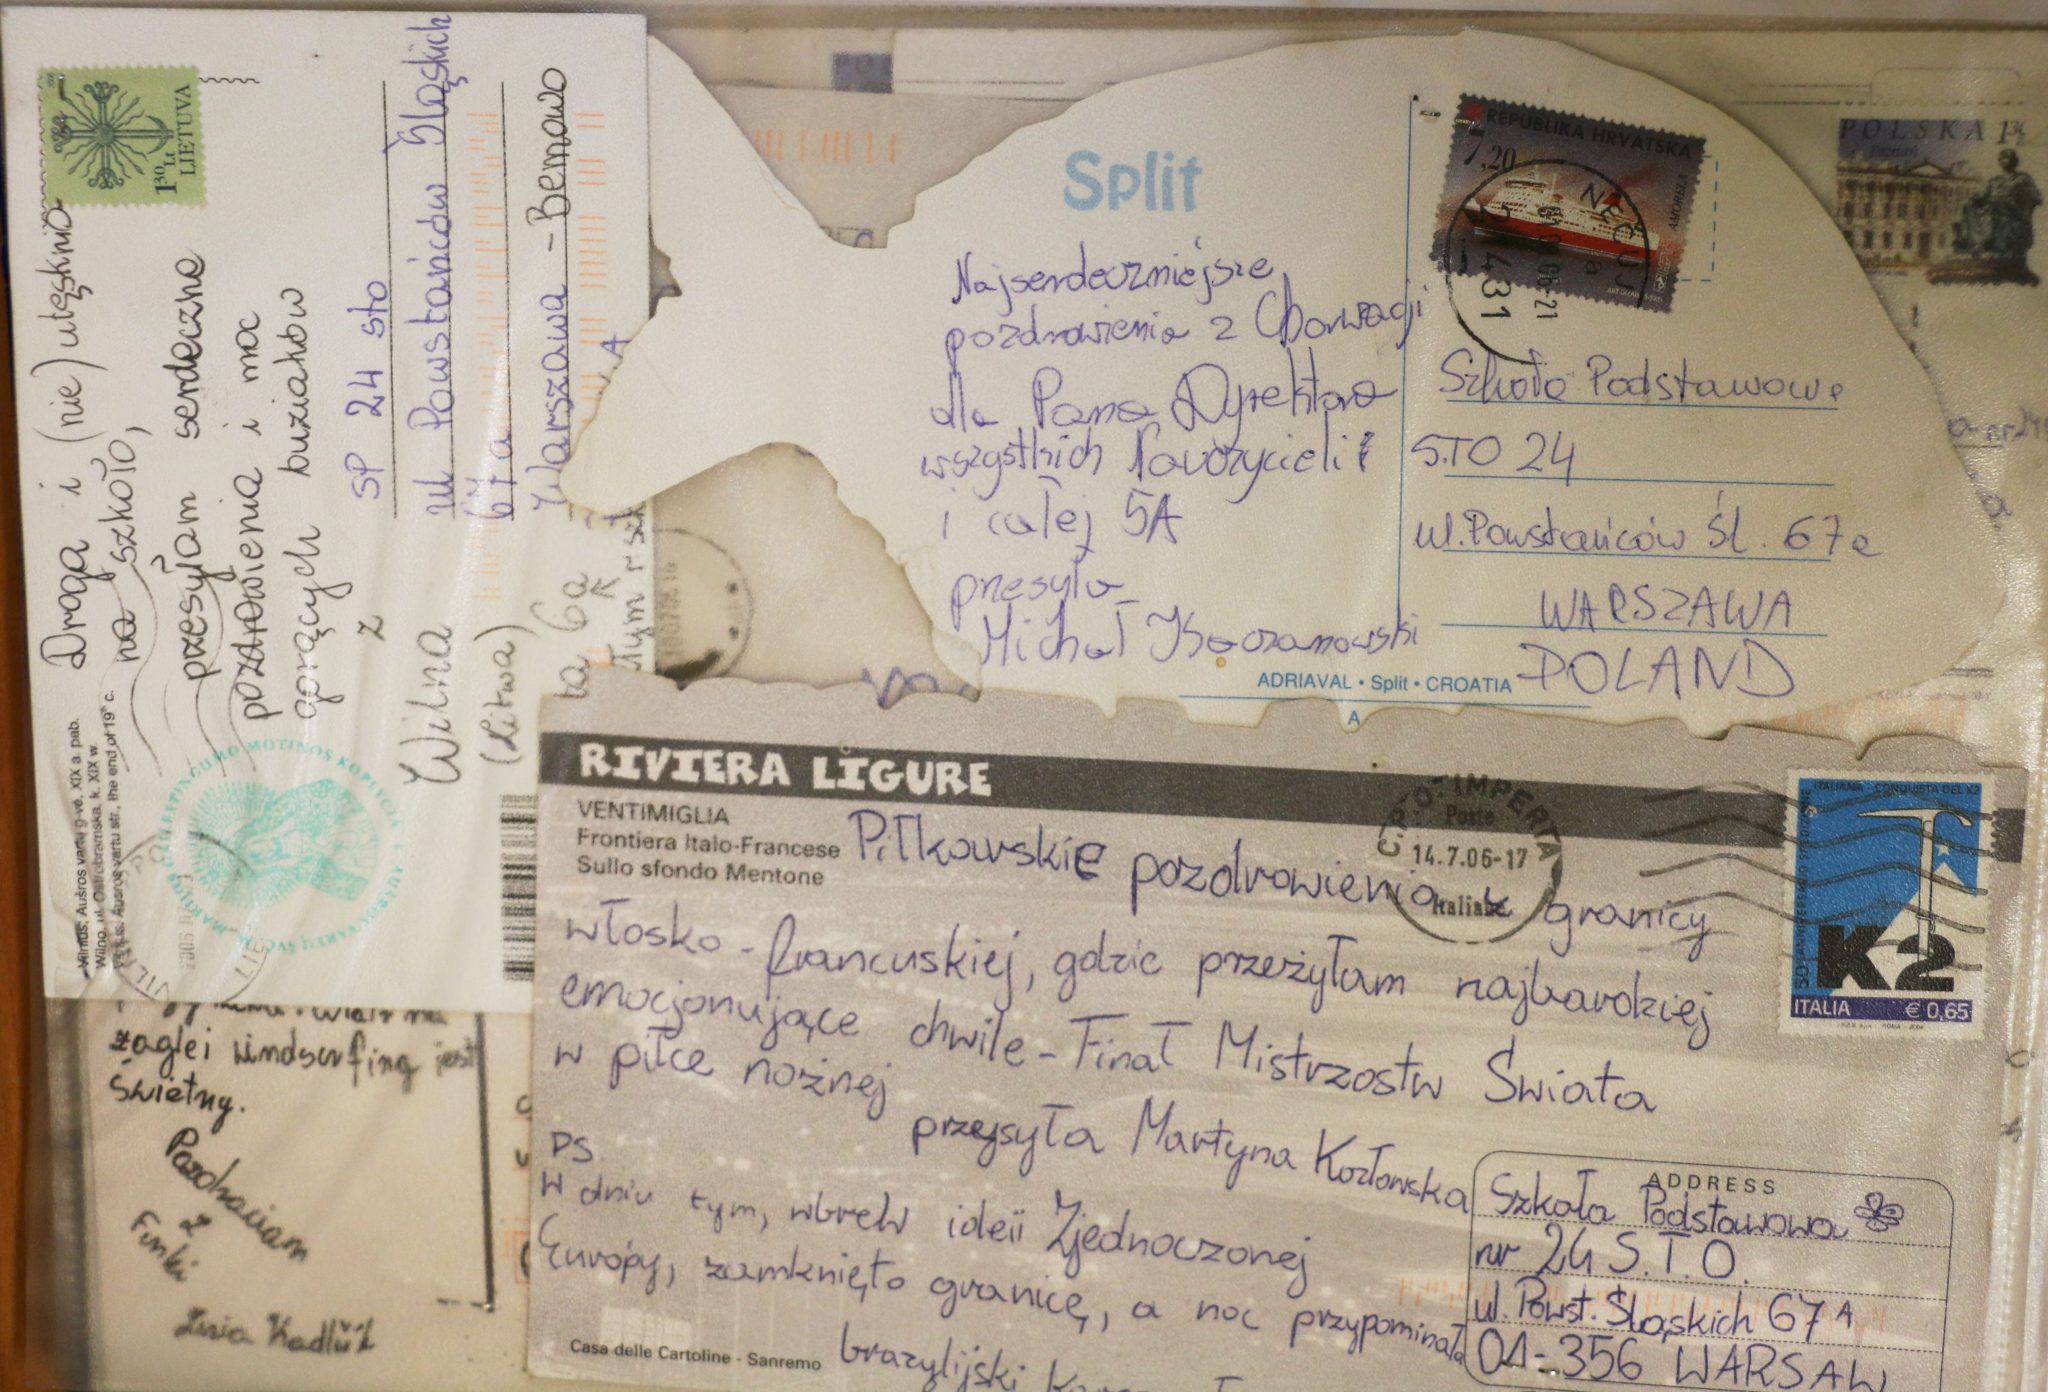 1³⁰ Lt
LIETUVA
Droga i (nie) utęskniona
na szkoło,
przesyłam serdeczne
pozdrowienia i moc
gorących buziaków
z
Wilna
(Litwa)
SP 24 sto
ul Powstańców Śląskich
67a
Warszawa - Bemowo
Vilnius. Aušros vartų g-vė. XIX a. pab.
Wilno. ul. Ostrobramska. k. XIX w.
Vilnius. Ausros vartu str., the end of 19th c.
6a
żaglei windserfing jest
świetny.
Pozdraciam
z
Finki
Split
REPUBLIKA HRVATSKA
7,20
AMORELA
NEČUJ
21431
Najserdeczniejsze
pozdrowienia z Chorwacji
dla Pana Dyrektora
wszystkich Nauczycieli
i całej 5A
przesyła
Michał Kaczanowski
Szkoła Podstawowa
STO 24
ul. Powstańców Śl. 67a
WARSZAWA
POLAND
ADRIAVAL • Split • CROATIA
A
POLSKA 1³⁰
RIVIERA LIGURE
VENTIMIGLIA
Frontiera Italo-Francese
Sullo sfondo Mentone
C.P.O. IMPERIA
Poste
14.7.06-17
Italiane
ITALIANA - CONQUISTA DEL K2
K2
ITALIA € 0,65
Piłkowskie pozdrowienia z granicy
włosko - francuskiej, gdzie przeżyłam najbardziej
emocjonujące chwile - Finał Mistrzostw Świata
w piłce nożnej
przesyła Martyna Kozłowska
PS.
W dniu tym, wbrew ideii Zjednoczonej
Europy, zamknięto granicę, a noc przypominała
brazylijski
Casa delle Cartoline - Sanremo
ADDRESS
Szkoła Podstawowa
nr 24 S.T.O.
ul. Powst. Śląskich 67A
01-356 WARSAW